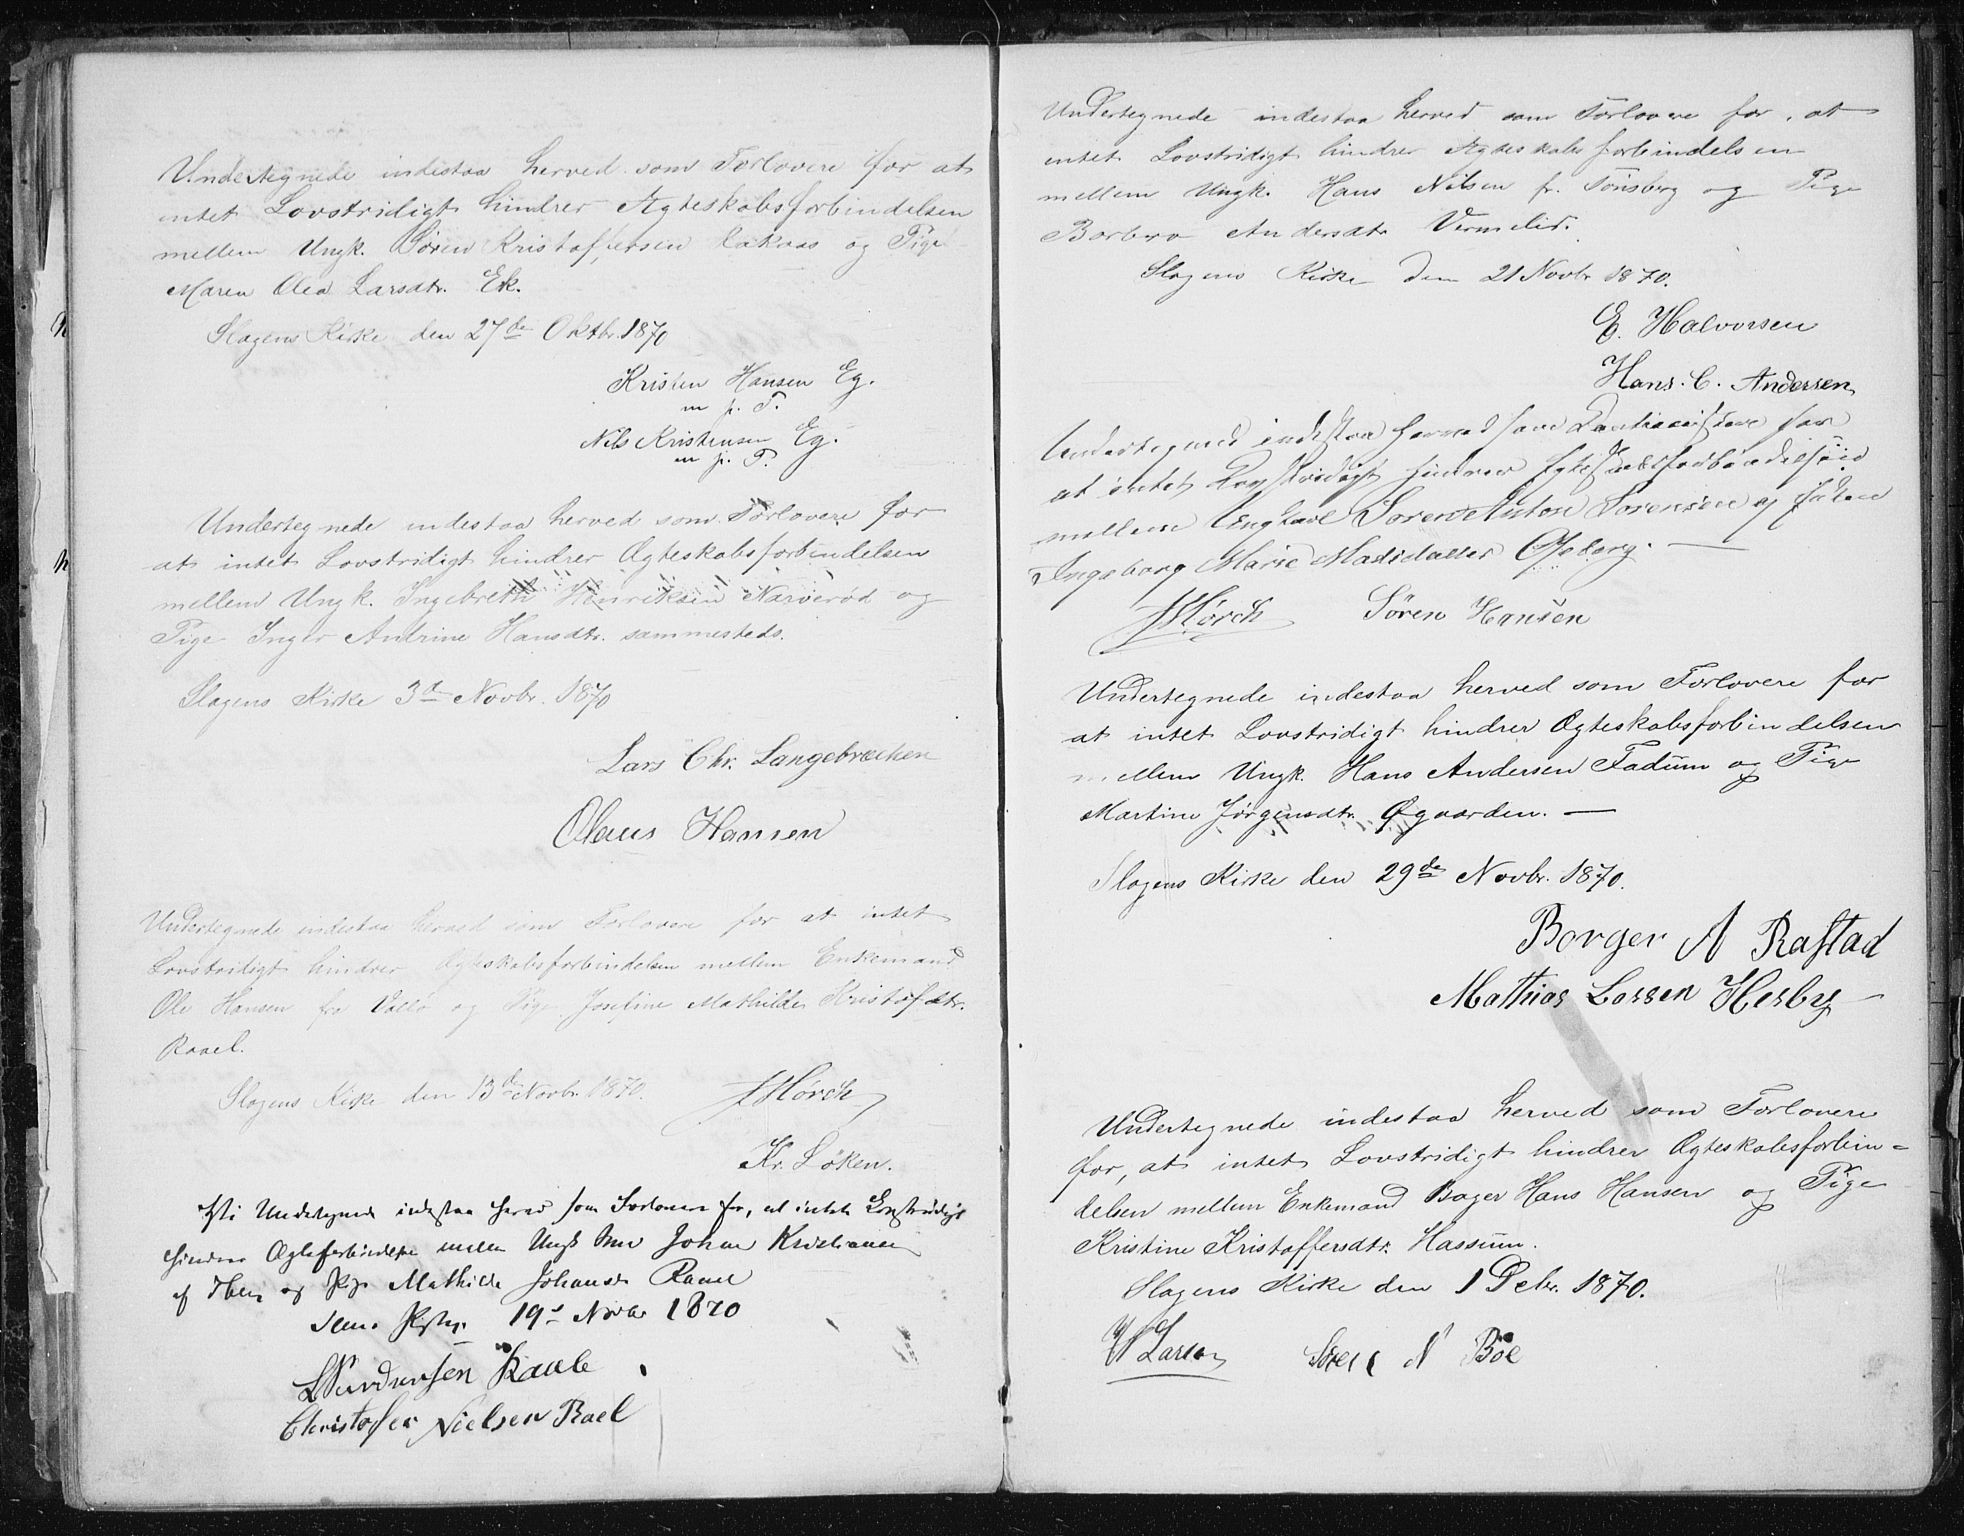 Undertegnede indestaa herved som Forlovere for at
intet Lovstridigt hindrer Ægteskabsforbindelsen
mellem Ungk. Søren Kristoffersen og Pige
Maren Olea Larsdtr. Ek.
Slagens Kirke den 27de Oktbr. 1870
Kristen Hansen Eg.
m. p. P.
Nils Kristensen Eg.
m. p. P.
Undertegnede indestaa herved som Forlovere for
at intet Lovstridigt hindrer Ægteskabsforbindelsen
mellem Ungk. Ingebreth Henriksen Narverød og
Pige Inger Andrine Hansdtr. sammesteds.
Slagens Kirke 3de Novbr. 1870
Lars Chr. Langebrækken
Olaus Hansen
Undertegnede indestaa herved som Forlovere for at intet
Lovstridigt hindrer Ægteskabsforbindelsen mellem Enkemand
Ole Hansen fra Vallø og Pige Josefine Mathilde Kristofdtr.
Raael.
Slagens Kirke den 13de Novbr. 1870.
Hørch
Kr. Løken.
Vi Undertegnede indestaa herved som Forlovere for, at intet Lovstridigt
hindrer Ægteforbindelse mellem Ungk Johan Kristiansen
af og Pige Mathilde Johansdt
19de Novbr 1870
Christofer Nielsen Rael
Undertegnede indestaa herved som Forlovere for, at
intet Lovstridigt hindrer Ægteskabsforbindelsen
mellem Ungk. Hans Nilsen fr. Tönsberg og Pige
Barbro Andersdtr. Vermelid.
Slagens Kirke den 21 Novbr 1870.
E. Halvorsen
Hans. C. Andersen
Undertegnede indestaa herved som for
at intet Lovstridigt hindrer Ægteskabsforbindelse
mellem Ungkarl Søren Anton Sørensen og Piken
Ingeborg Marie Madsdatter
Hørch Søren Hansen
Undertegnede indestaa herved som Forlovere for
at intet Lovstridigt hindrer Ægteskabsforbindelsen
mellem Ungk. Hans Andersen Fadum og Pige
Martine Jørgensdtr. Øgaarden. —
Slagens Kirke den 29de Novbr. 1870.
Borger A Rastad
Mathias Larsen Hesby
Undertegnede indestaa herved som Forlovere
for, at intet Lovstridigt hindrer Ægteskabsforbin=
delsen mellem Enkemand Bager Hans Hansen og Pige
Kristine Kristoffersdtr. Hassum.
Slagens Kirke den 1 Debr. 1870.
Larsen Søren N Böe